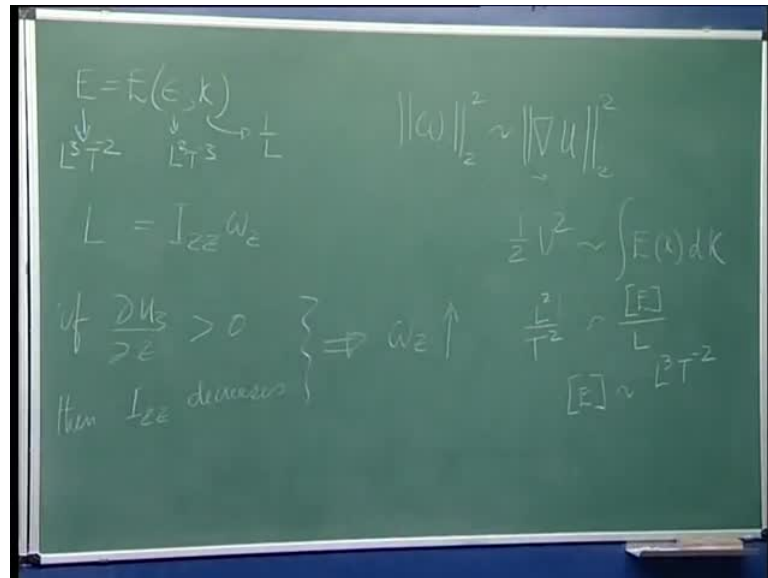 E = E(ϵ, k)
L³T⁻² L²T⁻³ 1/L
L = I_zz ω_z
if ∂u₃/∂z > 0
then I_zz decreases } ⇒ ω_z ↑
||ω||₂² ~ ||∇u||₂²
1/2 V² ~ ∫E(k)dk
L²/T² ~ [E]/L
[E] ~ L³T⁻²